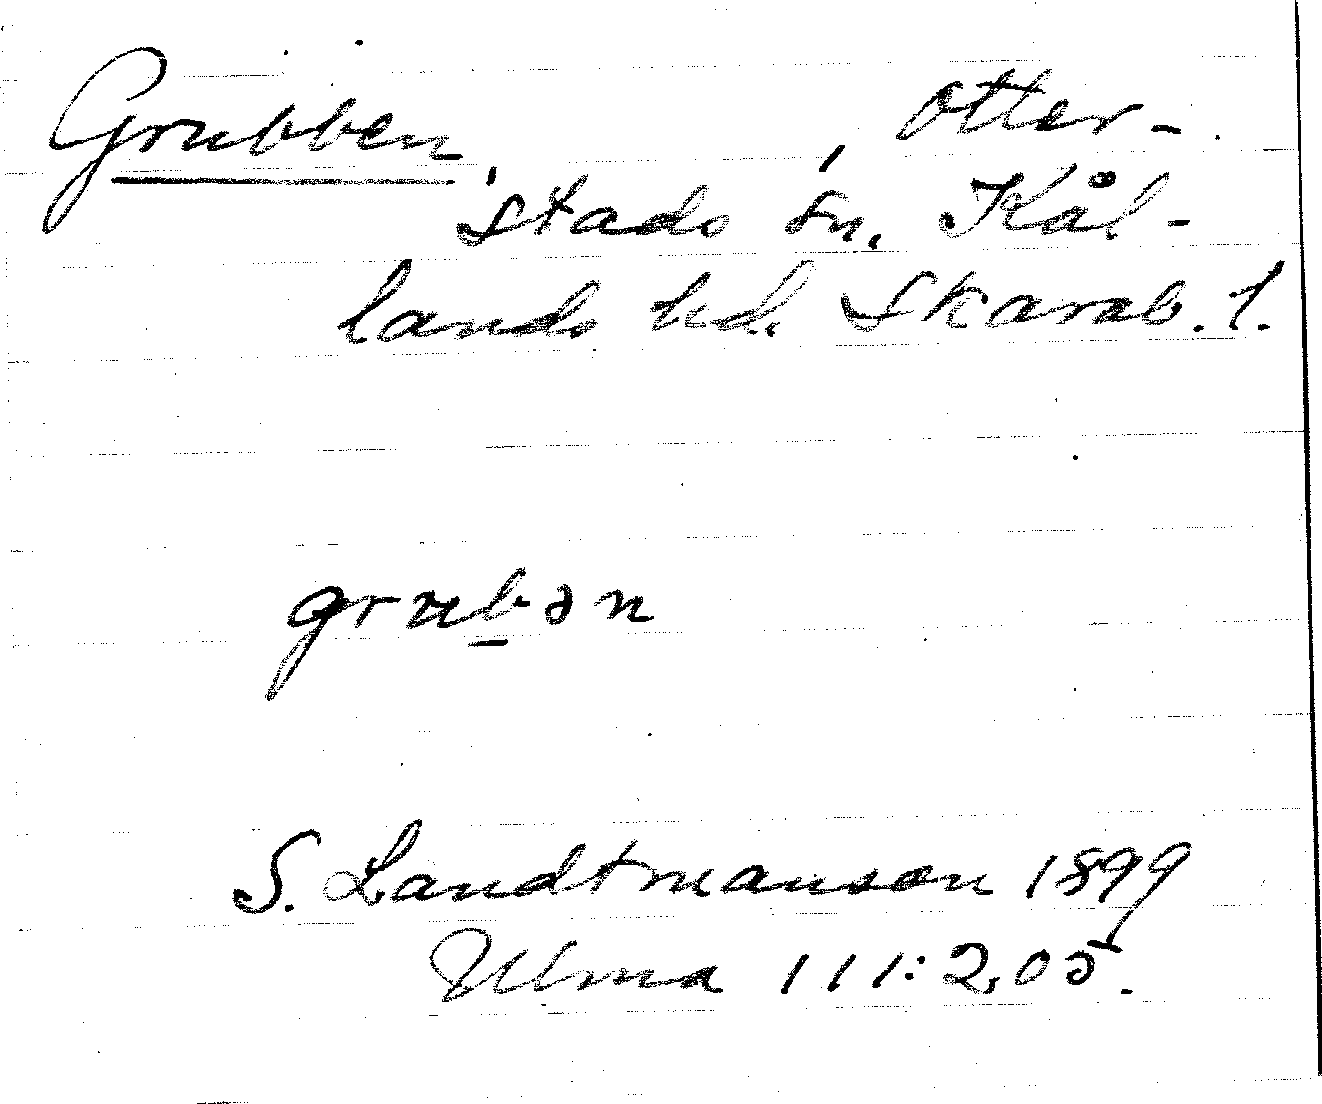 Grubben, , Otter-
stads sn. Kål-
lands hd. Skarab. l.
grubən
S. Landtmanson 1899
Ulma 111:205.